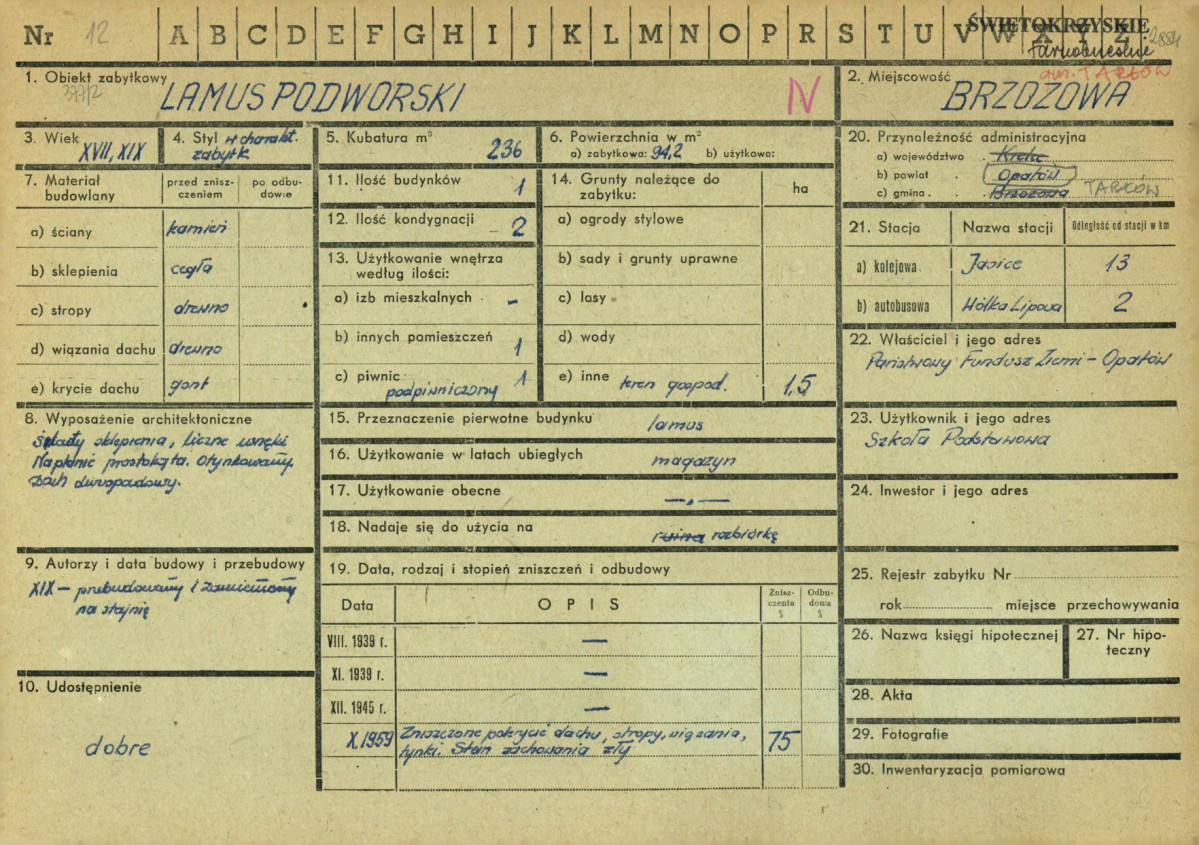 Nr 12 A B C D E F G H I J K L M N O P R S T U V W X Y Z
ŚWIĘTOKRZYSKIE
tarnobrzeskie
gm. TARŁÓW
1. Obiekt zabytkowy
377/2
LAMUS PODWORSKI
IV
2. Miejscowość
BRZOZOWA
3. Wiek
XVII, XIX
4. Styl w charakt.
zabytk
5. Kubatura m³
236
6. Powierzchnia w m²
a) zabytkowa: 94,2 b) użytkowa:
7. Materiał budowlany
przed zniszczeniem
po odbudowie
a) ściany kamień
b) sklepienia cegła
c) stropy drewno
d) wiązania dachu drewno
e) krycie dachu gont
8. Wyposażenie architektoniczne
Ślady sklepienia, liczne wnęki
Na planie prostokąta. Otynkowany.
Dach dwuspadowy.
9. Autorzy i data budowy i przebudowy
XIX – przebudowany i zamieniony
na stajnię
10. Udostępnienie
dobre
11. Ilość budynków 1
12. Ilość kondygnacji – 2
13. Użytkowanie wnętrza
według ilości:
a) izb mieszkalnych -
b) innych pomieszczeń 1
c) piwnic podpiwniczony 1
14. Grunty należące do
zabytku:
ha
a) ogrody stylowe
b) sady i grunty uprawne
c) lasy
d) wody
e) inne teren gospod. 1,5
15. Przeznaczenie pierwotne budynku lamus
16. Użytkowanie w latach ubiegłych magazyn
17. Użytkowanie obecne —„—
18. Nadaje się do użycia na ruina rozbiórkę
19. Data, rodzaj i stopień zniszczeń i odbudowy
Data OPIS Zniszczenia % Odbudowa %
VIII. 1939 r. —
XI. 1939 r. —
XII. 1945 r. —
X.1959 Zniszczone pokrycie dachu, stropy, wiązania,
tynki. Stan zachowania zły 75
20. Przynależność administracyjna
a) województwo . Kielce
b) powiat . Opatów
c) gmina . . Brzozowa TARŁÓW
21. Stacja Nazwa stacji Odległość od stacji w km
a) kolejowa Jasice 13
b) autobusowa Wólka Lipowa 2
22. Właściciel i jego adres
Państwowy Fundusz Ziemi – Opatów
23. Użytkownik i jego adres
Szkoła Podstawowa
24. Inwestor i jego adres
25. Rejestr zabytku Nr
rok miejsce przechowywania
26. Nazwa księgi hipotecznej
27. Nr hipoteczny
28. Akta
29. Fotografie
30. Inwentaryzacja pomiarowa